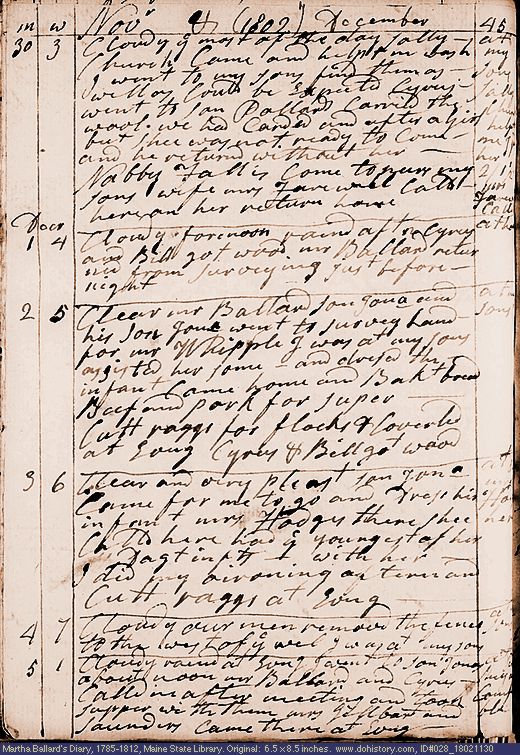 m w Novr & (1802) December 45
30 3 Cloudy ye most of the day. Sally
Church Came and helpt me wash
I went to my sons find them as
well as Could be Expected Cyrus
went to son Pollards Carried the
wool we had Carded and after a girl
but shee was not ready to Come
and he returnd without her
Nabby Fall is Come to nurs my
sons wife mrs Farewell Calld
here on her return home
Decr
1 4 Cloudy forenoon raind aftn Cyrus
and Bill got wood mr Ballard retur
ned from surveying just before
night
2 5 Clear mr Ballard son Jona and
his son went to survey land
for mr Whipple I was at my sons
assisted her some and dresed the
infant Came home and Bakt bread
Beef and Pork for super
Cutt raggs for flocks & Coverled
at Evng Cyrus & Bill got wood
3 6 Clear and very pleast son Jona
Came for me to go and Dress his
infant mrs Hodges there shee
had ye youngest of her
I with her
I did my aironing aftern and
Cutt raggs at Evng
4 7 Cloudy our men remove the fence
to the west of ye well I was at my sons
5 1 Cloudy raind at Evng I went to son Jonas
about noon mr Ballard and Cyrus
Calld in after meeting and took
supper with them mrs and
Saunders Came there at Evng
Martha Ballard's Diary, 1785-1812, Maine State Library. Original: 6.5 x 8.5 inches. www.dohistory.org, ID#028_18021130